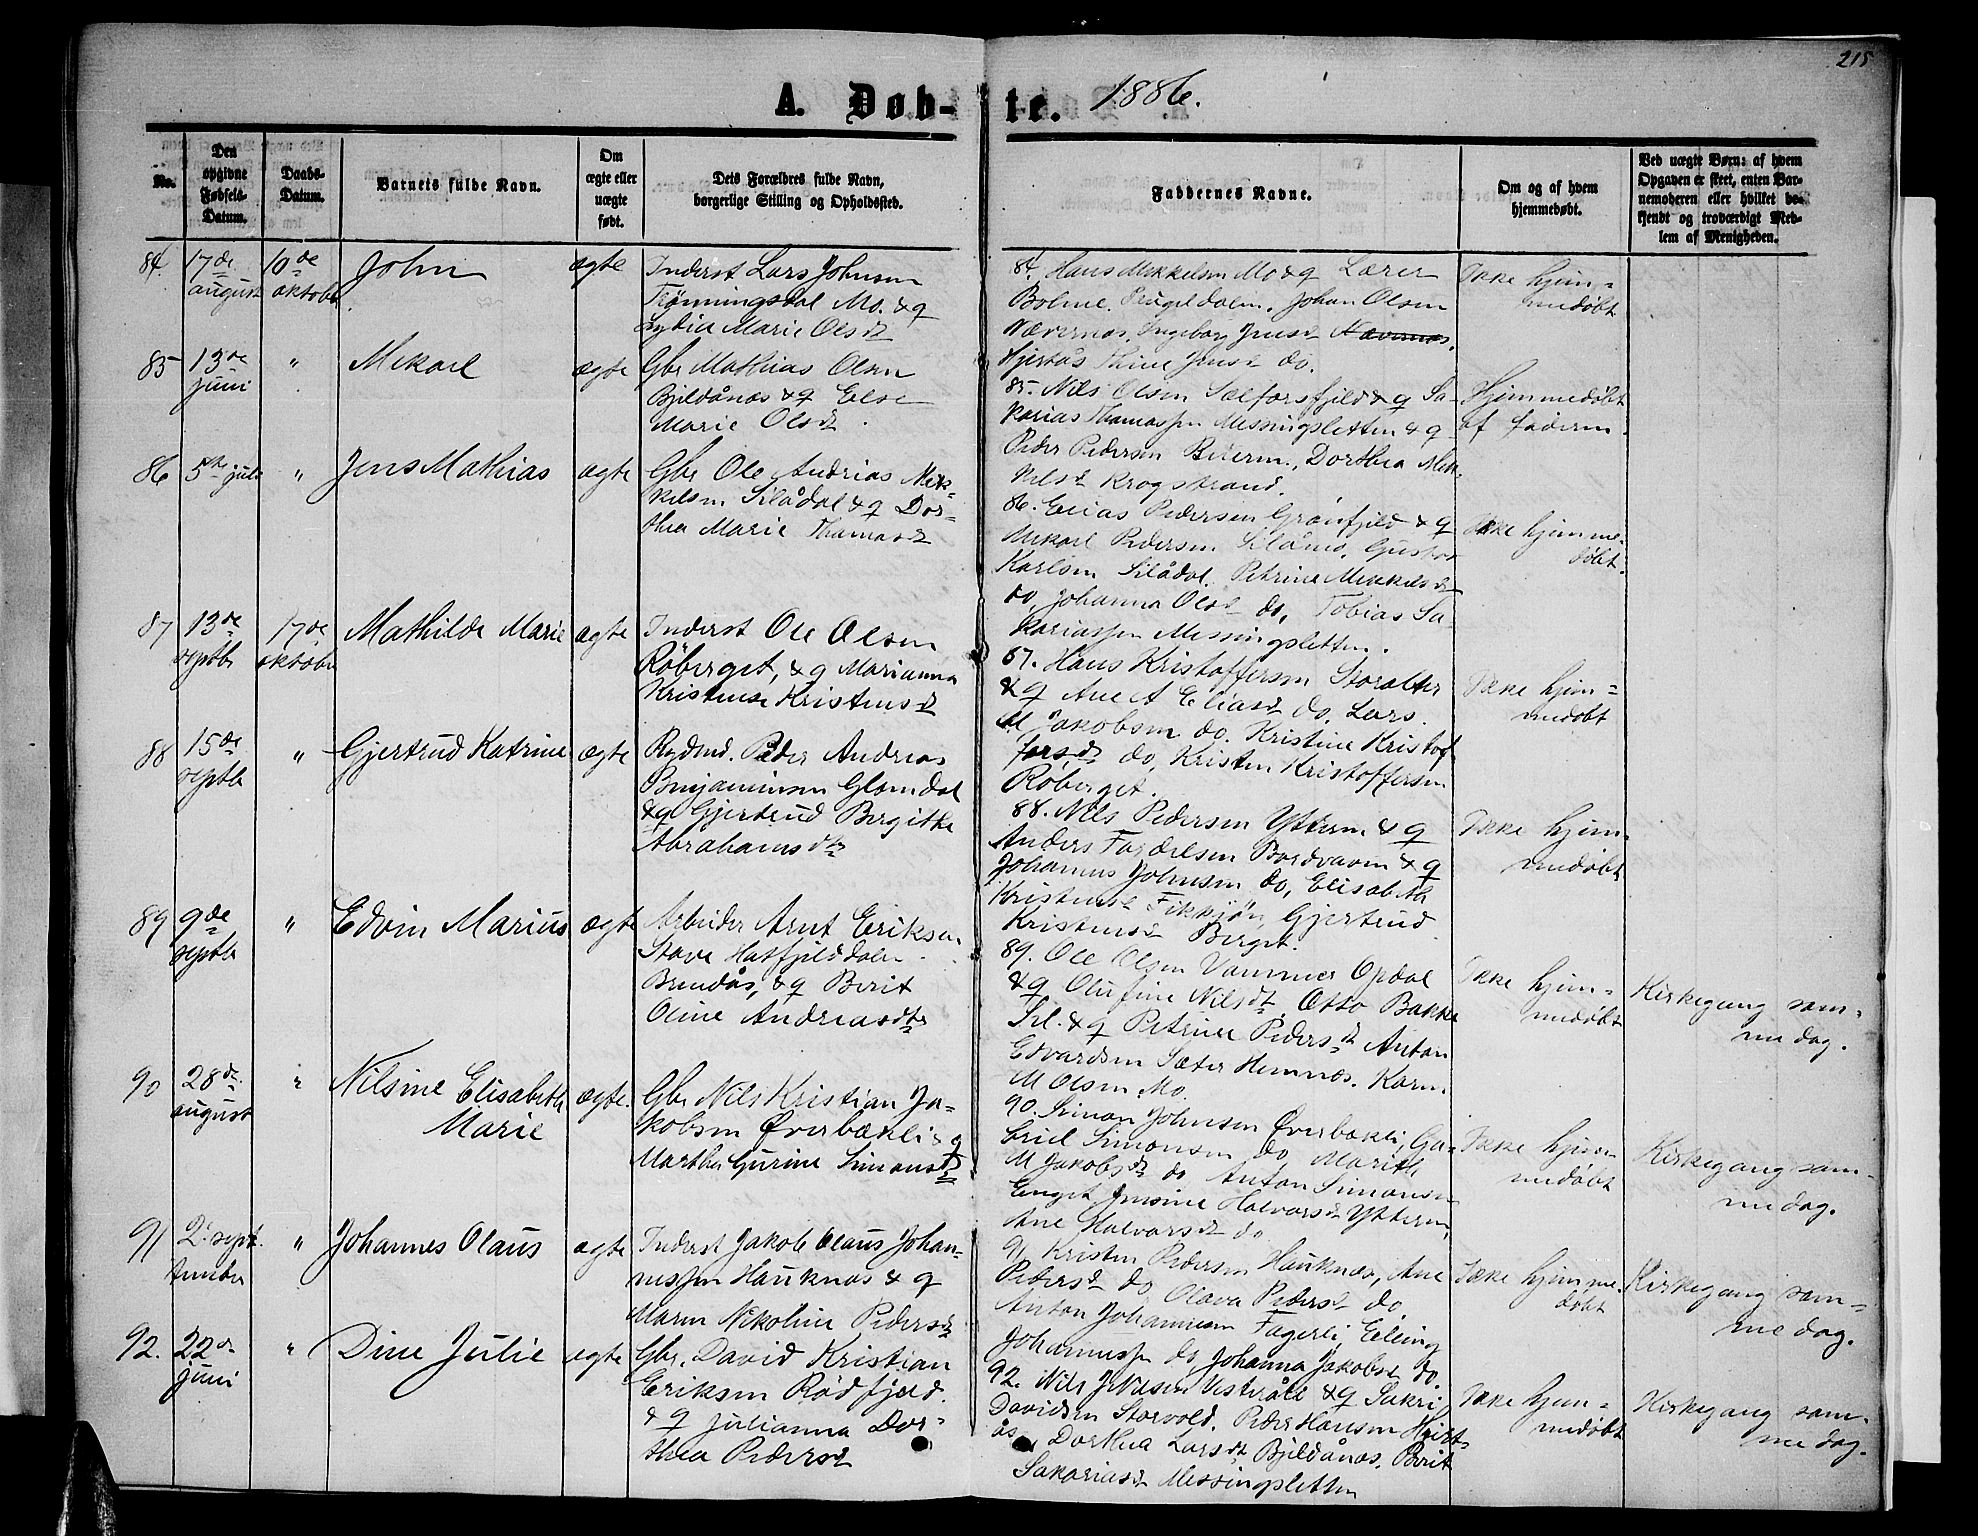 215
A. Døb-te. 1886.
No.
Den opgivne Fødsels-Datum.
Daabs-Datum.
Barnets fulde Navn.
Om ægte eller uægte født.
Dets Forældres fulde Navn, borgerlige Stilling og Opholdssted.
Faddernes Navne.
Om og af hvem hjemmedøbt.
Ved uægte Børn: af hvem
Opgaven er skeet, enten Bar-
nemoderen eller hvilket be-
kjendt og troværdigt Med-
lem af Menigheden.
84. 17de august 10de oktobr John ægte
Inderst Lars Johnsen
Trønningsdal Mo. & q
Lydia Marie Olsdt
84. Hans Mikkelsen Mo & q Lærer
Bolme. Johan Olsen
Nævernes, Ingebor Jensd Nævernes,
Hjertås Thine Jensd do.
Ikke hjem=
medøbt
85 13de juni " Mikael ægte
Gbr Mathias Olsen
Bjildånæs & q Else
Marie Olsdt.
85. Nils Olsen Selforsfjeld & q Sa-
karias Thomassen Messingsletten & q
Peder Pedersen, Dorthea Mik-
kelsd Krogstrand.
Hjemmedøbt
af faderen.
86 5te juli " Jens Mathias ægte
Gbr Ole Andrias Mik-
kelsen Silådal & q Dor-
thea Marie Thomasdt
86. Elias Pedersen Grønfjeld & q
Mikael Pedersen Silånes, Gustav
Karlsen Silådal. Petrine Mikkelsdt
do, Johanna Olsd do, Tobias Sa
kariassen Messingsletten.
Ikke hjemme-
døbt.
87 13de septbr 17de oktobr Mathilde Marie ægte
Inderst Ole Olsen
Røberget, & q Marianna
Kristense Kristensdt
87. Hans Kristoffersen Storalter
& q Ane A Eliasd do, Lars
M Jakobsen do. Kristine Kristof
fersdt do, Kristen Kristoffersen
Røberget.
Ikke hjem=
medøbt
88 15de septbr " Gjertrud Katrine ægte
Rydnd. Peder Andreas
Benjaminsen Glomdal
& q Gjertrud Bergitha
Abrahamsdtr
88. Nils Pedersen Ytteren & q
Anders Pordvaven & q
Johannes Johnsen do, Elisabeth
Kristensd, Gjertrud
Kristensd Berget.
Ikke hjem=
medøbt
89 9de septbr " Edvin Marius ægte
Arbeider Arnt Eriksen
Stave Hatfjelddalen
Brendås, & q Berit
Oline Andreasdtr
89. Ole Olsen Vammer Opdal
& q Olufine Nilsdt, Otto Bakke
Sel. & q Petrine Pedersdt Anton
Edvardsen Sæter Hemnes. Karen
M Olsen Mo.
Ikke hjem=
medøbt
Kirkegang sam=
me dag.
90 28de august " Nilsine Elisabeth
Marie ægte.
Gbr Nils Kristian Ja-
kobsen Øverbækli & q
Martha Gurine Simonsdt
90. Simon Johnsen Øverbækli, Ga=
briel Simonsen do Marith
M Jakobsdt do Anton Simonsen
Enget Halvorsdt Ytteren,
Ane Halvorsdt do
Ikke hjem-
medøbt
Kirkegang sam-
me dag.
91 2. sept.
tember " Johannes Olaus ægte
Inderst Jakob Olaus Johan-
nessen Hauknæs & q
Maren Nikoline Pedersdt
91. Kristen Pedersen Hauknæs, Ane
Pedersd do, Olava Pedersd do
Anton Johannesen Fagerli, Elling
Johannessen do, Johanna Jakobsd do.
Ikke hjemme-
døbt
Kirkegang sam=
me dag.
92. 22de juni " Dine Julie ægte
Gbr. David Kristian
Eriksen Rødfjeld.
& q Julianna Dor=
thea Pedersd
92. Nils J Nilsen Vesterålie & q Sakri
Davidsen Storvold. Peder Hansen Hjert-
ås, Dorthea Larsdt Bjildånæs, Berit
Sakariasd Messingsletten
Ikke hjem=
medøbt
Kirkegang sam-
me dag.